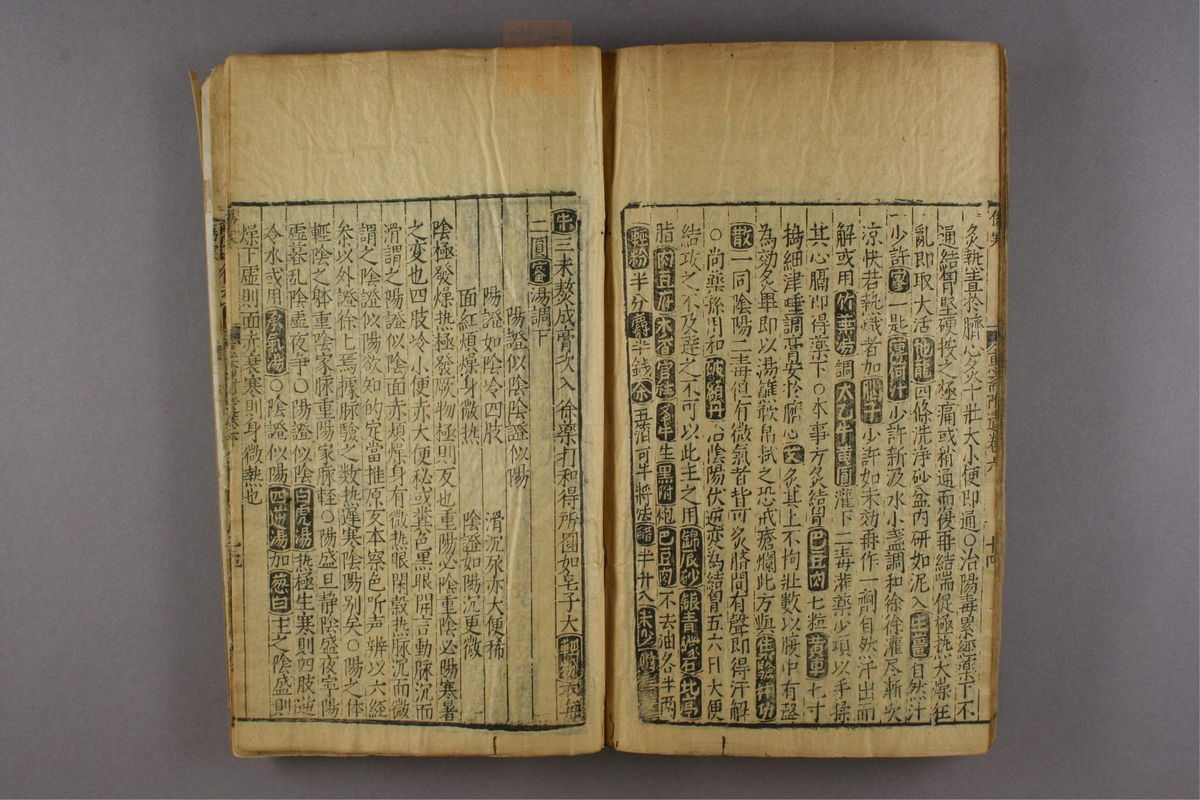 灸熱置於臍心灸十壯大小便即通○治陽毒累經藥下不
通結胷堅硬按之極痛或稍通而復再結喘促極熱大燥狂
亂即取大活地龍四條洗淨砂盆內研如泥入生薑自然汁
一少許蜜一匙薄荷汁少許新汲水小盞調和徐徐灌尽漸次
涼快若熱熾者加腦子少許如未効再作一劑自然汗出而
解或用竹葉湯調大乙牛黃圓灌下二毒灌藥少項以手揉
其心膈即得藥下○本事方灸結胷巴豆肉七粒黃連七寸
搗細津唾調膏安於臍心艾灸其上不拘壯數以腹中有聲
為効灸畢即以湯蘸軟帛拭之恐成瘡爛此方極佳驗神功
散一同陰陽二毒但有微氣者皆可灸臍間有聲即得汗解
○尚藥孫用和破棺丹治陰陽伏逆變為結胷五六日大便
結攻之不及達之不可以此主之用辰砂銀青礞石
脂肉豆蔻木香官桂生黑附炮巴豆肉不去油各半兩
輕粉半分麝半錢五酒可半將法醋半升入
牛三末熬成膏次入徐藥打和得所圓如皂子大每
二圓蜜湯調下
陽證似陰陰證似陽
陽證如陰冷四肢 滑沉尿赤大便稀
面紅煩燥身微熱 陰證如陽沉更微
陰極發燥热極發厥物極則反也重陽必陰重陰必陽寒暑
之变也四肢冷小便赤大便秘或糞色黑眼開言動脉沉而
滑謂之陽證似陰面赤煩燥身有微热眼閑殼热脉沉而微
謂之陰證似陽欲知的定當推原反本察色听声辨以六經
叅以外證徐七焉據脉驗之数热遲寒陰陽別矣○陽之体
輕陰之躰重陰家脉重陽家脉輕○陽盛旦静陰盛夜寧陽
虛暮乱陰虛夜爭○陽證似陰白虎湯热極生寒則四肢逆
冷水或用承氣湯○陰證似陽四逆湯加葱白主之陰盛則
燥干虛則面赤裏寒則身微熱也